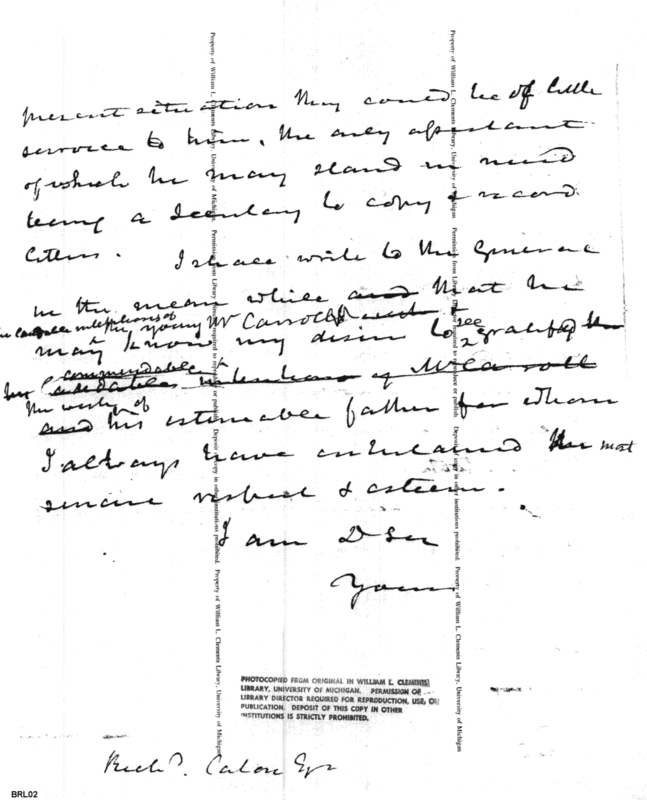 present situation they could be of little
service to him, the only assistant
of which he may stand in need
being a Secretary to copy & record
letters. I shall write to the General
in the mean while and that he
the laudable intentions of the young Mr Carroll &
may know my desire to see gratified the
commendable
laudable intentions of Mr Carroll
the wishes of
and his estimable father for whom
I always have entertained the most
sincere respect & esteem.
I am D Sir
Yours
PHOTOCOPIED FROM ORIGINAL IN WILLIAM L. CLEMENTS
LIBRARY, UNIVERSITY OF MICHIGAN. PERMISSION OF
LIBRARY DIRECTOR REQUIRED FOR REPRODUCTION, USE, OR
PUBLICATION. DEPOSIT OF THIS COPY IN OTHER
INSTITUTIONS IS STRICTLY PROHIBITED.
Richd. Caton Esqr
BRL02
Property of William L. Clements Library, University of Michigan. Permission from Library Director required to reproduce or publish. Deposit of copy in other institutions prohibited. Property of William L. Clements Library, University of Michigan
Property of William L. Clements Library, University of Michigan. Permission from Library Director required to reproduce or publish. Deposit of copy in other institutions prohibited. Property of William L. Clements Library, University of Michigan